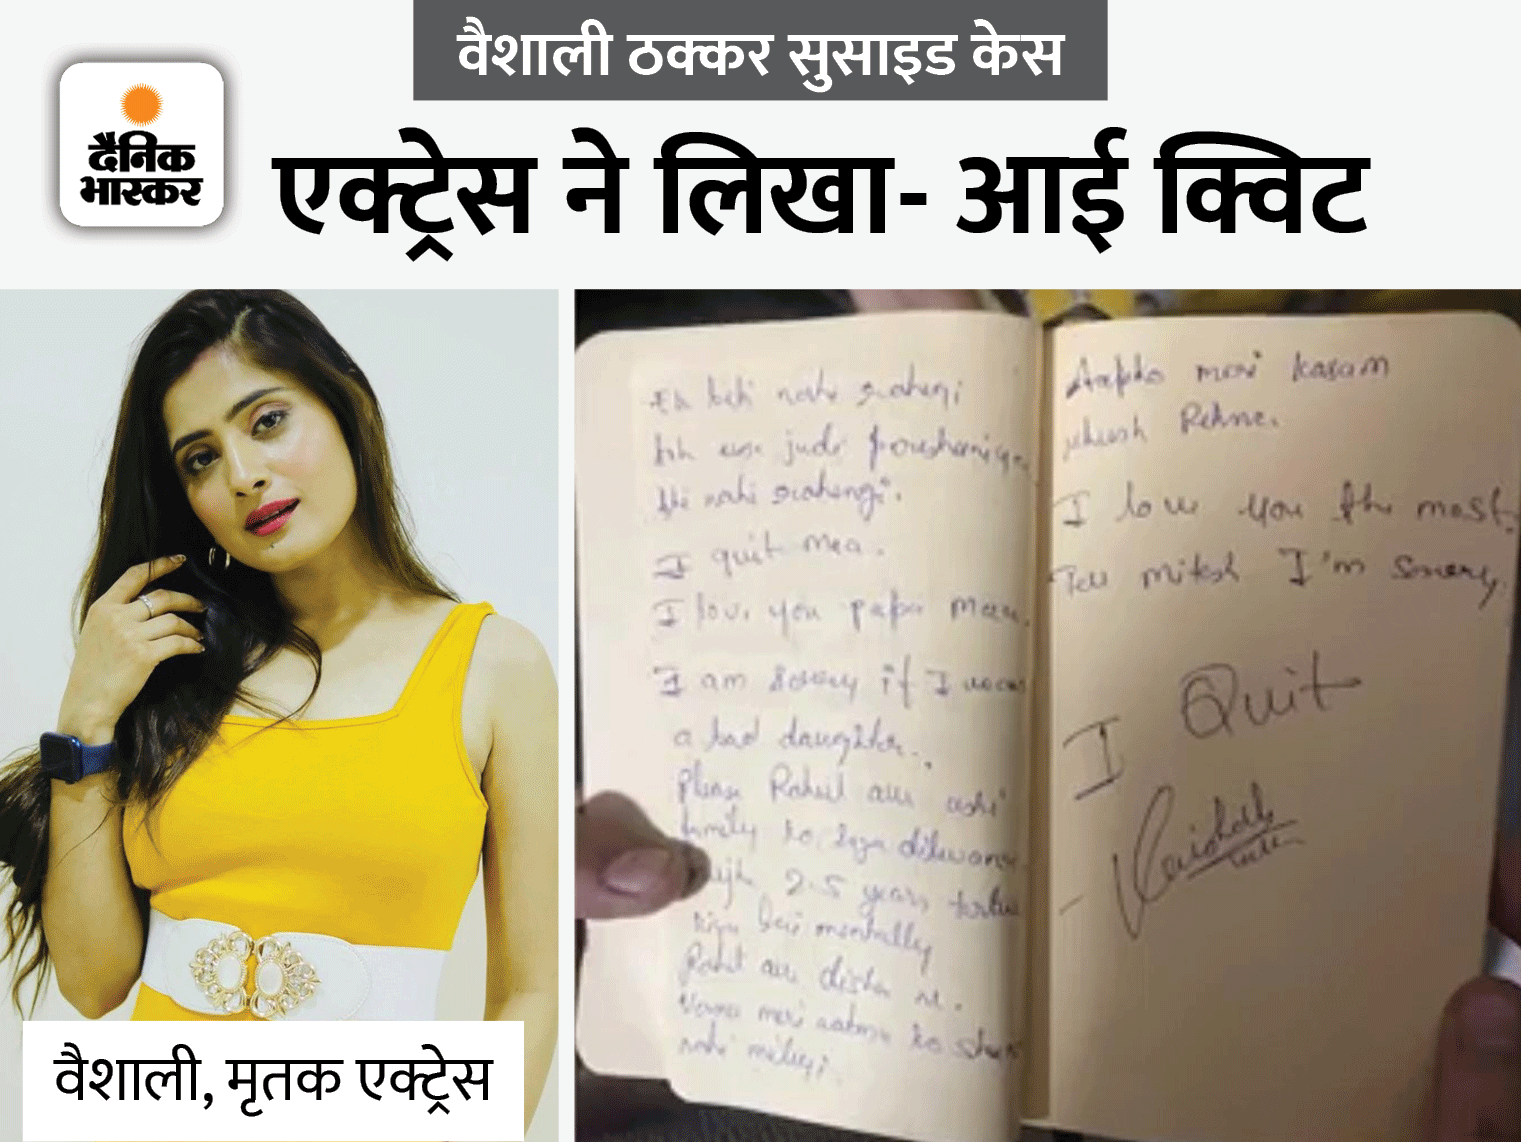 वैशाली ठक्कर सुसाइड केस
दैनिक
भास्कर
एक्ट्रेस ने लिखा- आई क्विट
nahi rahengi
judi
bhi nahi rahengi.
I quit maa.
I love you papa maa.
I am sorry if I was
a bad daughter.
please Rahul aur uski
family ko saja dilwana
2.5 years
kiya hai mentally
aur disha ne.
Varna meri aatma ko
nahi milegi.
Aapko meri kasam
khush Rehne.
I love you the most.
Tell mitesh I'm sorry.
I Quit
- Vaishali
वैशाली, मृतक एक्ट्रेस